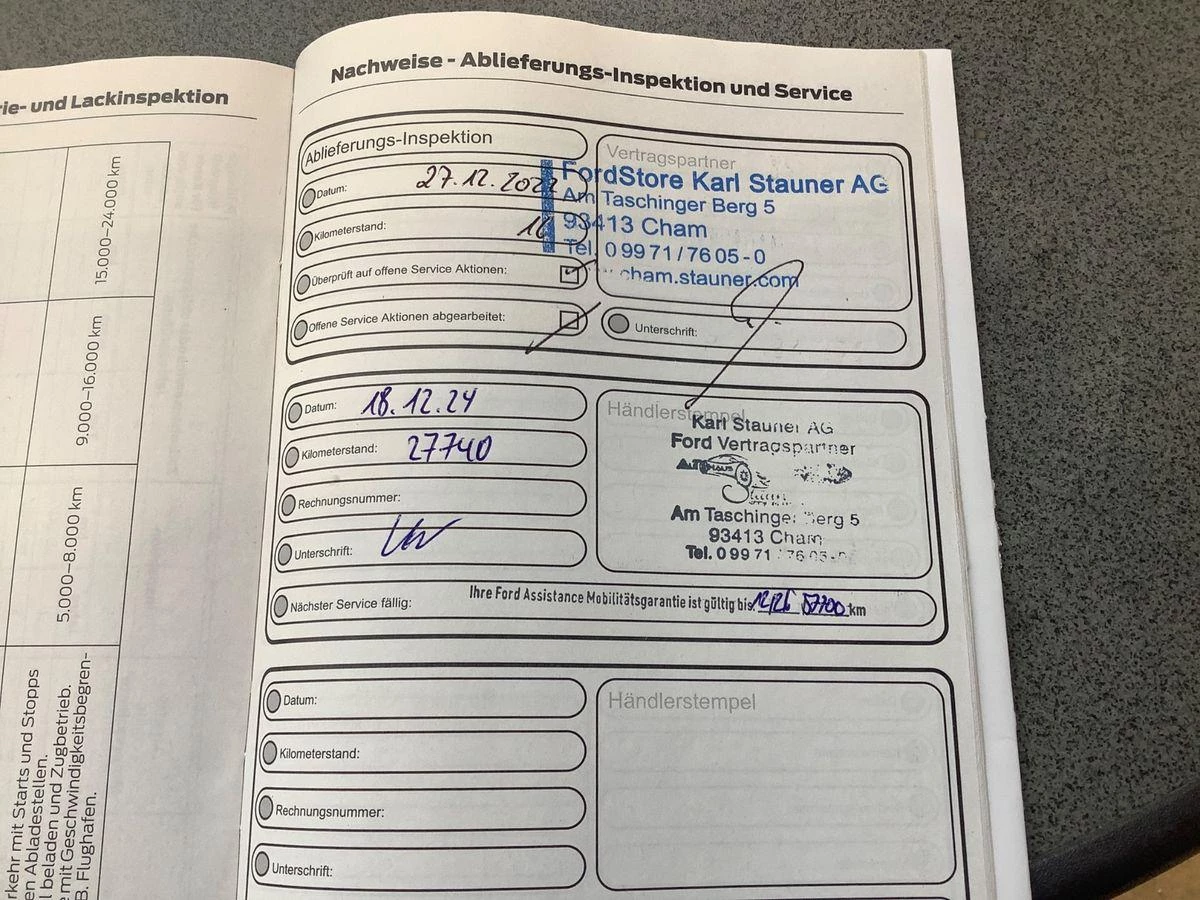 rie- und Lackinspektion
15.000–24.000 km
9.000–16.000 km
5.000–8.000 km
rkehr mit Starts und Stopps
en Abladestellen.
l beladen und Zugbetrieb.
mit Geschwindigkeitsbegren-
B. Flughafen.
Nachweise - Ablieferungs-Inspektion und Service
Ablieferungs-Inspektion
Datum: 27.12.2022
Kilometerstand: 16
Überprüft auf offene Service Aktionen:
Offene Service Aktionen abgearbeitet:
Vertragspartner
FordStore Karl Stauner AG
Am Taschinger Berg 5
93413 Cham
Tel. 0 99 71 / 76 05 - 0
cham.stauner.com
Unterschrift:
Datum: 18.12.24
Kilometerstand: 27740
Rechnungsnummer:
Unterschrift:
Händlerstempel
Karl Stauner AG
Ford Vertragspartner
Am Taschinger Berg 5
93413 Cham
Tel. 0 99 71 / 76 05-0
Nächster Service fällig: Ihre Ford Assistance Mobilitätsgarantie ist gültig bis 12/26 57700 km
Datum:
Kilometerstand:
Rechnungsnummer:
Unterschrift:
Händlerstempel